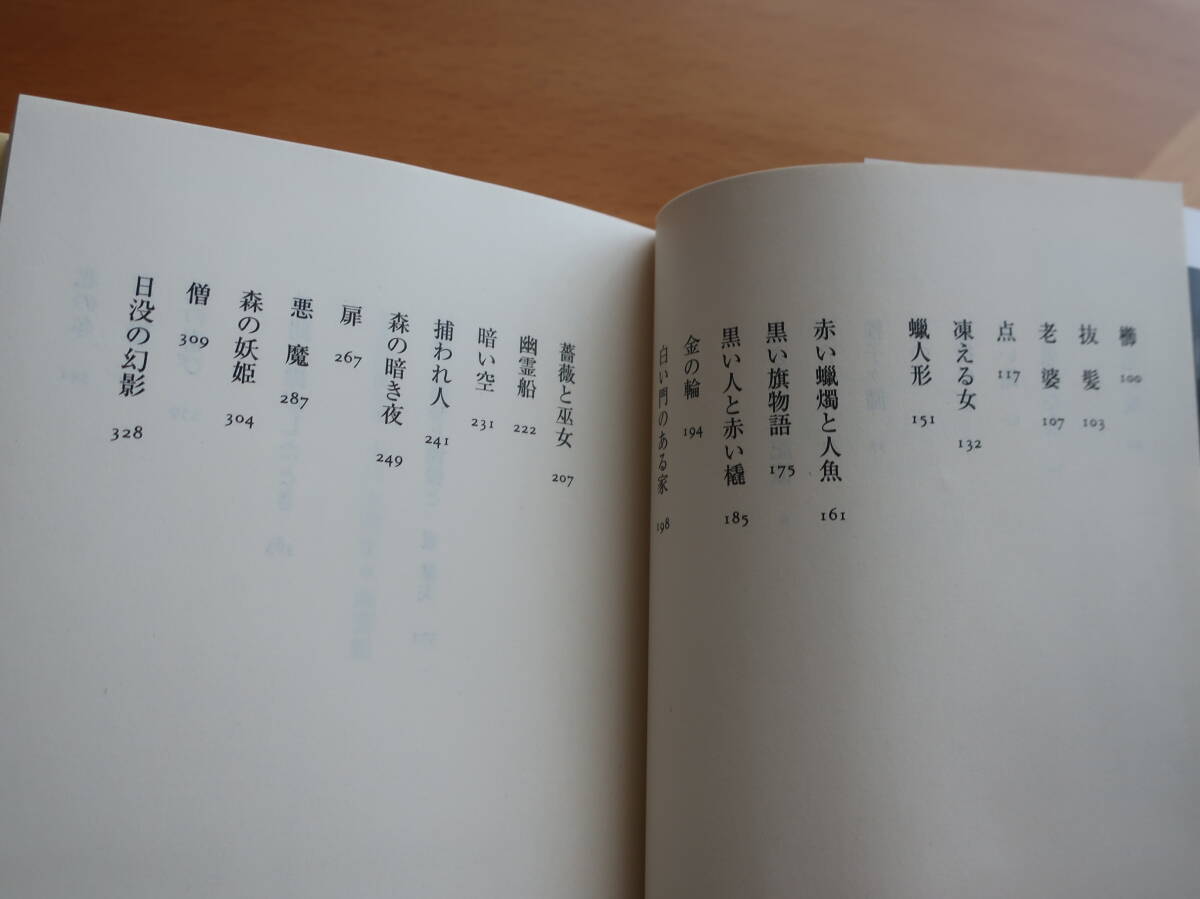 櫛 100
抜髪 103
老婆 107
点 117
凍える女 132
蠟人形 151
赤い蠟燭と人魚 161
黒い旗物語 175
黒い人と赤い橇 185
金の輪 194
白い門のある家 198
薔薇と巫女 207
幽霊船 222
暗い空 231
捕われ人 241
森の暗き夜 249
扉 267
悪魔 287
森の妖姫 304
僧 309
日没の幻影 328